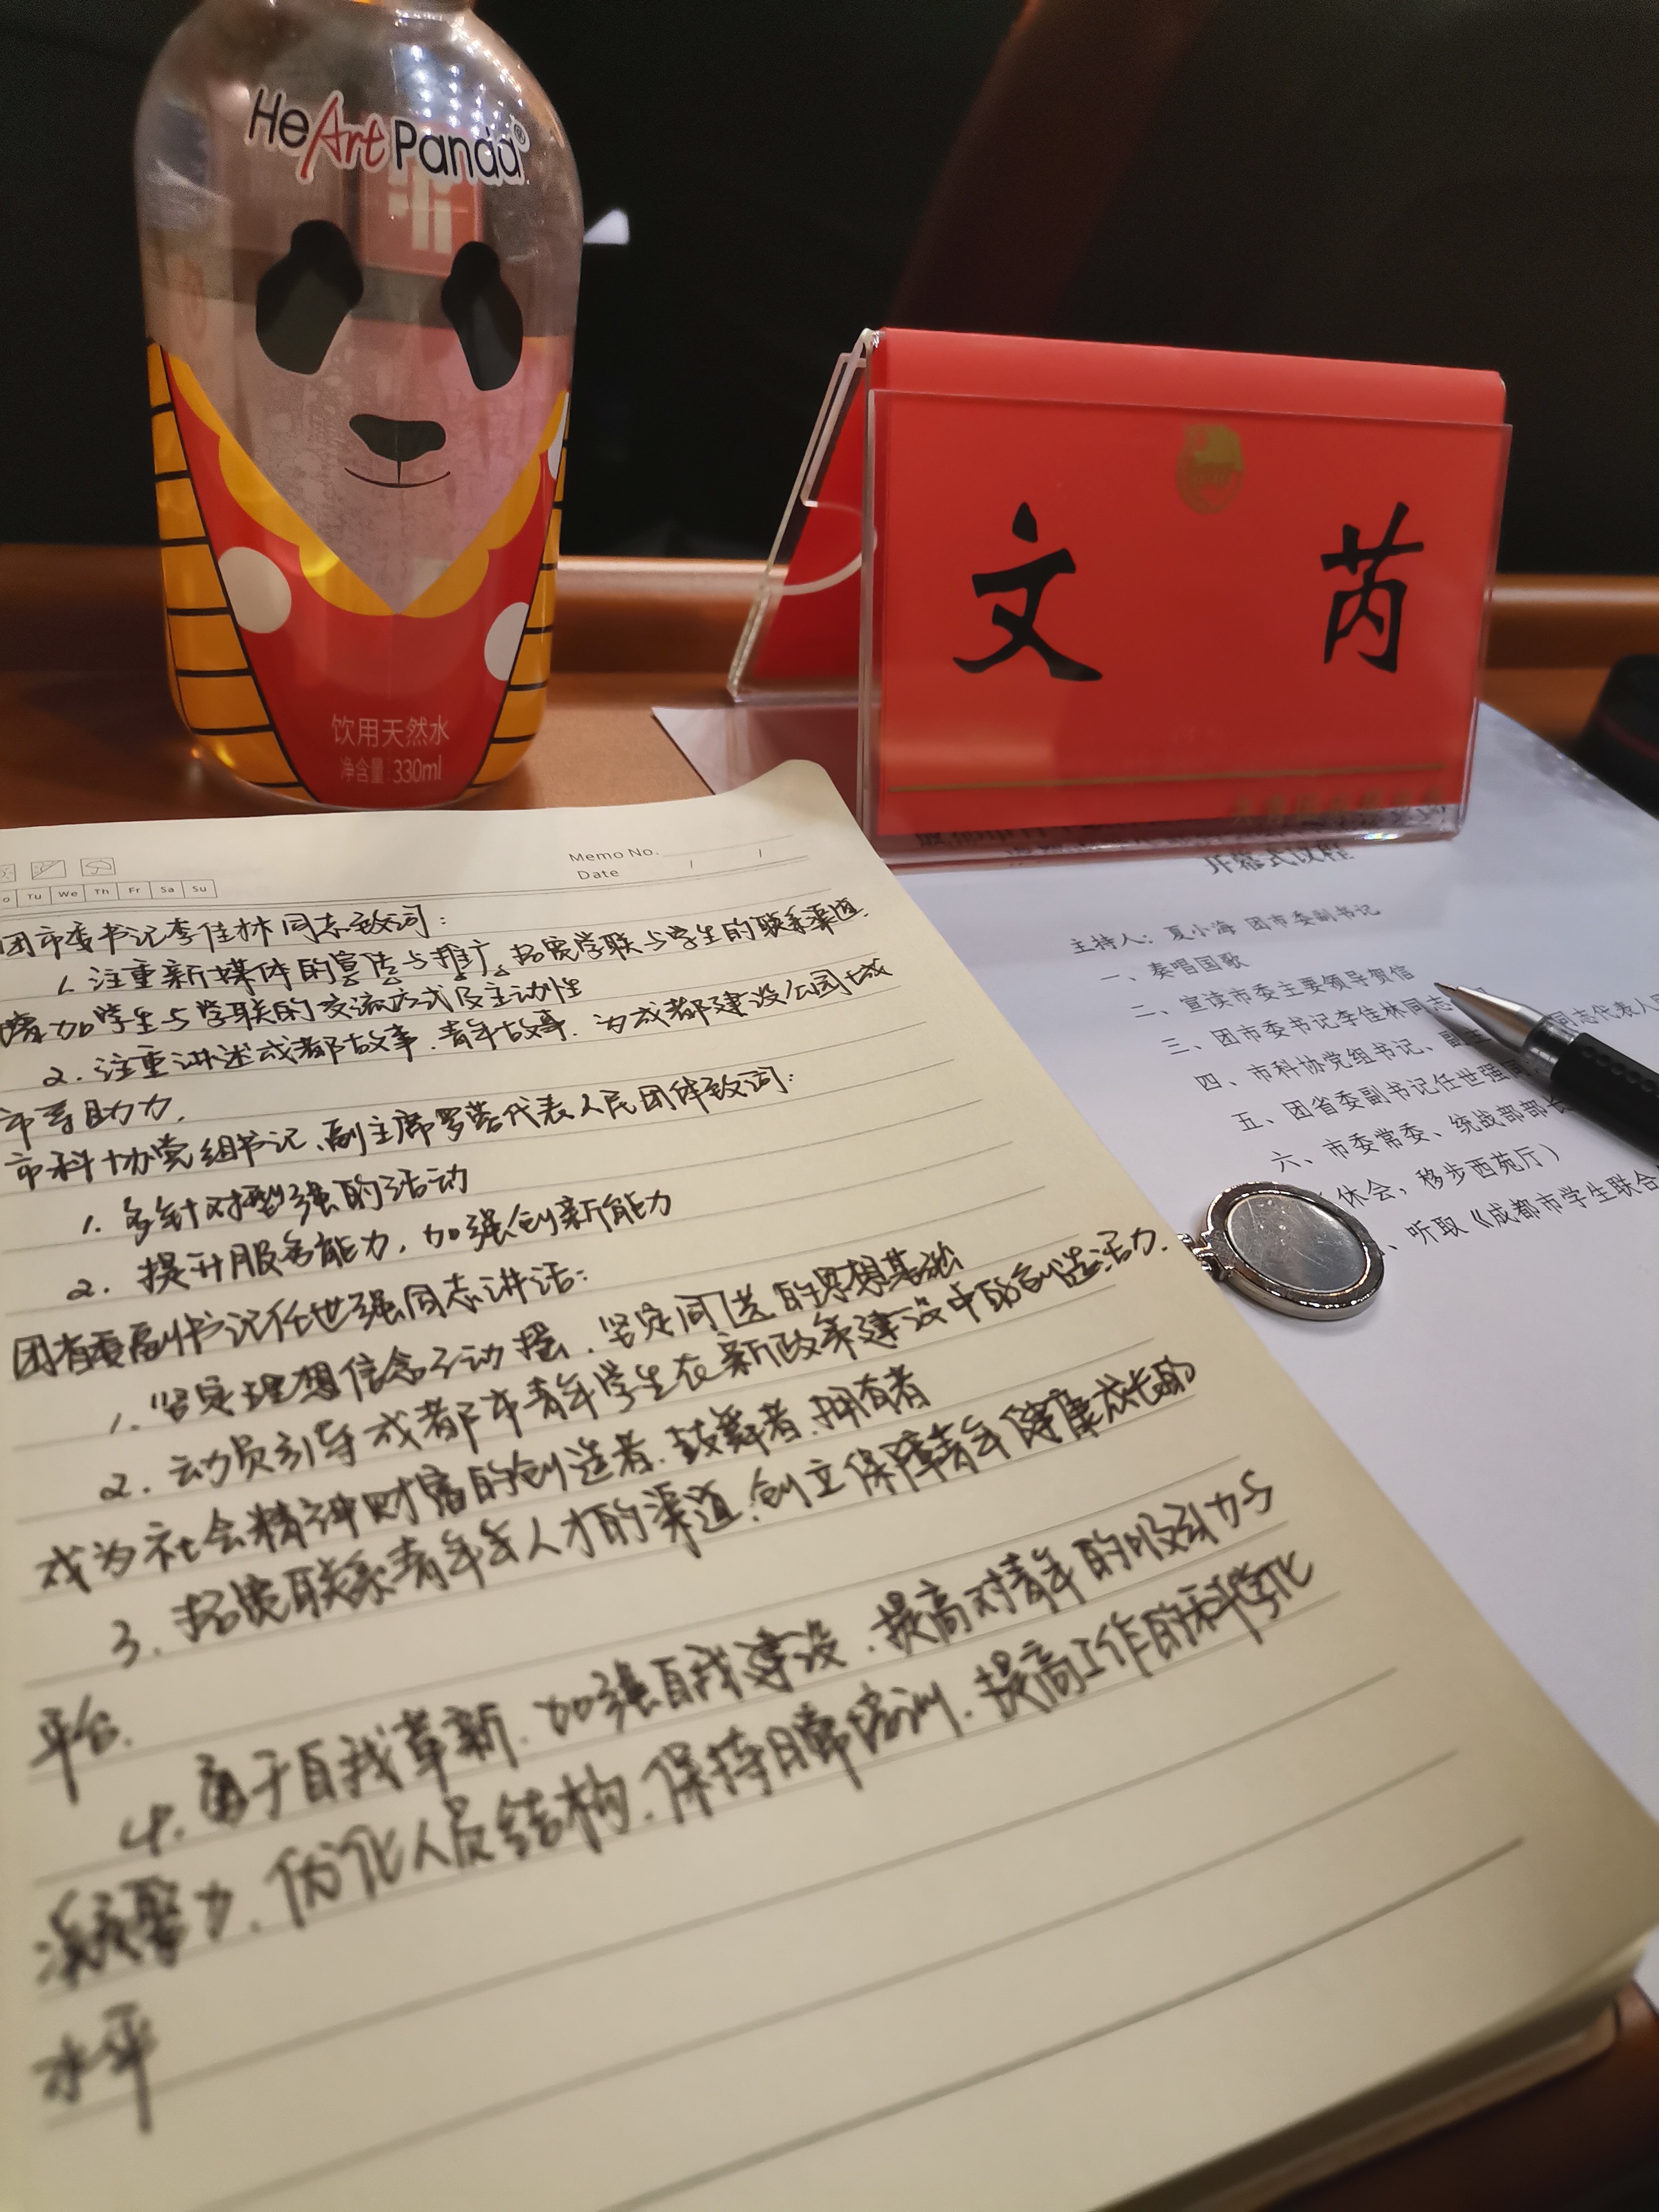 HeArt Panda®
饮用天然水
净含量:330ml
文 芮
Memo No.
Date / /
Tu We Th Fr Sa Su
团市委书记李佳林同志致词:
1. 注重新媒体的宣传与推广。拓宽学联与学生的联系渠道.
增加学生与学联的交流方式及主动性
2. 注重讲述成都故事、青年故事. 为成都建设公园城
市等助力.
市科协党组书记、副主席罗蓉代表人民团体致词:
1. 多针对型强的活动
2. 提升服务能力, 加强创新能力
团省委副书记任世强同志讲话:
1. 坚定理想信念不动摇. 坚定同心共的思想基础
2. 动员引导成都市青年学生在新政策建设中的创造活力.
成为社会精神财富的创造者. 鼓舞者. 拥有者
3. 拓宽联系青年人才的渠道. 创立保障青年健康成长的
平台.
4. 勇于自我革新. 加强自我建设. 提高对青年的吸引力与
凝聚力. 优化人员结构. 保持日常培训. 提高工作的科学化
水平
开幕式议程
主持人: 夏小海 团市委副书记
一、奏唱国歌
二、宣读市委主要领导贺信
三、团市委书记李佳林同志
四、市科协党组书记、副主 同志代表人民
五、团省委副书记任世强同
六、市委常委、统战部部长
休会, 移步西苑厅)
、听取《成都市学生联合